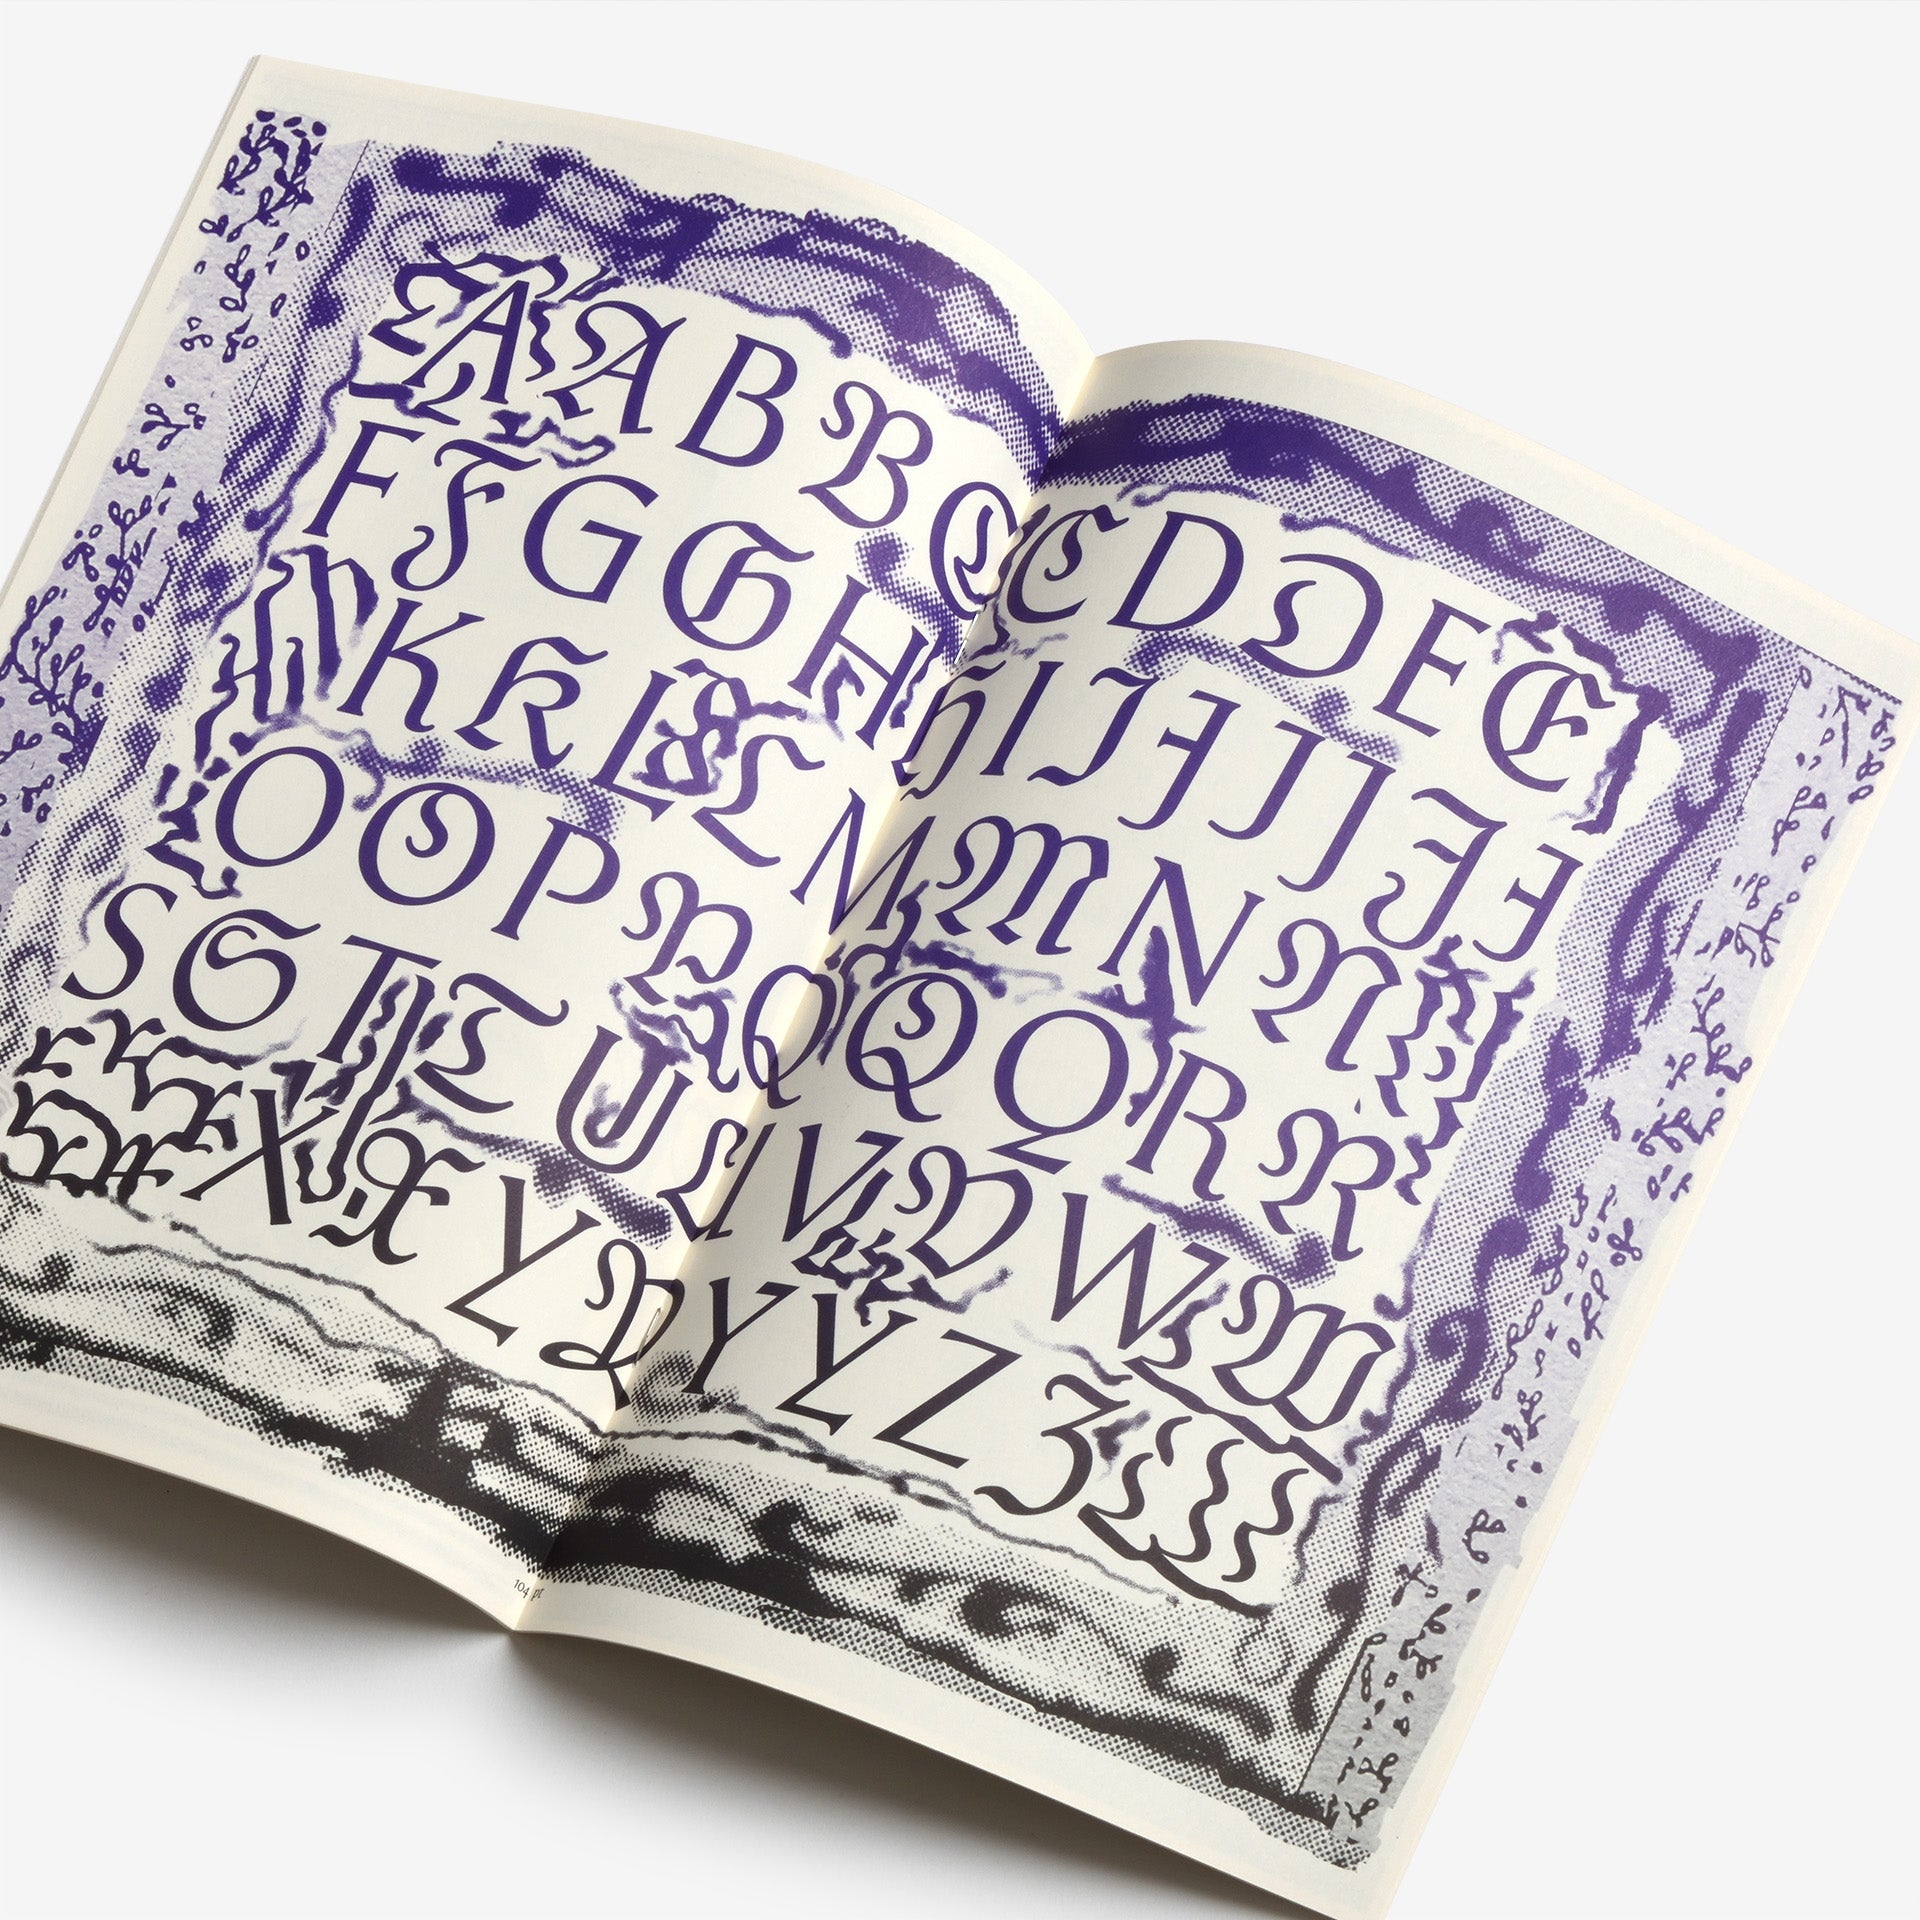 A A B B C C D D E E
F F G G H H I J J J J J J
K K L L M M N N
O O P P Q Q Q R R
S S T T U U V V W W
X X Y Y Y Y Z Z
104 pt